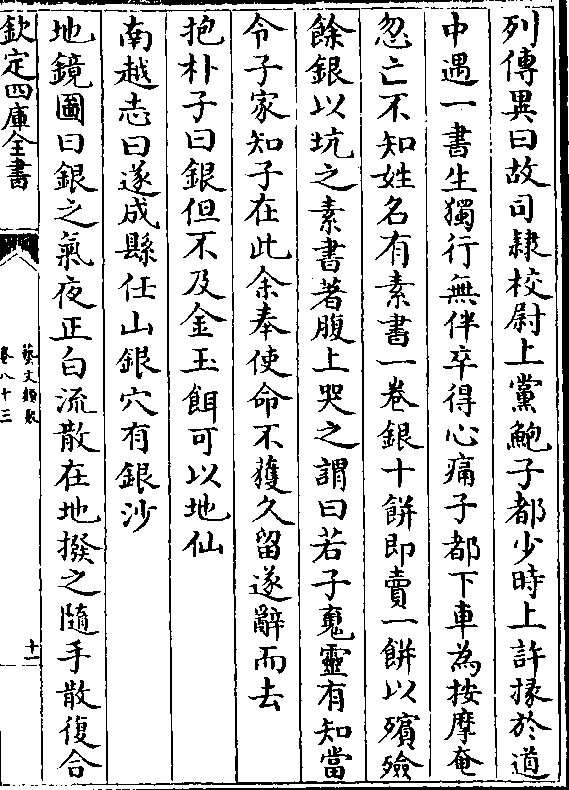 列傳異曰故司隸校尉上黨鮑子都少時上許掾於道
中遇一書生獨行無伴卒得心痛子都下車為按摩奄
忽亡不知姓名有素書一卷銀十餅即賣一餅以殯殮
餘銀以坑之素書著腹上哭之謂曰若子䰟靈有知當
令子家知子在此余奉使命不獲久留遂辭而去
抱朴子曰銀但不及金玉餌可以地仙
南越志曰遂成縣任山銀穴有銀沙
地鏡圖曰銀之氣夜正白流散在地撥之隨手散復合
欽定四庫全書
藝文類聚
卷八十三
十二